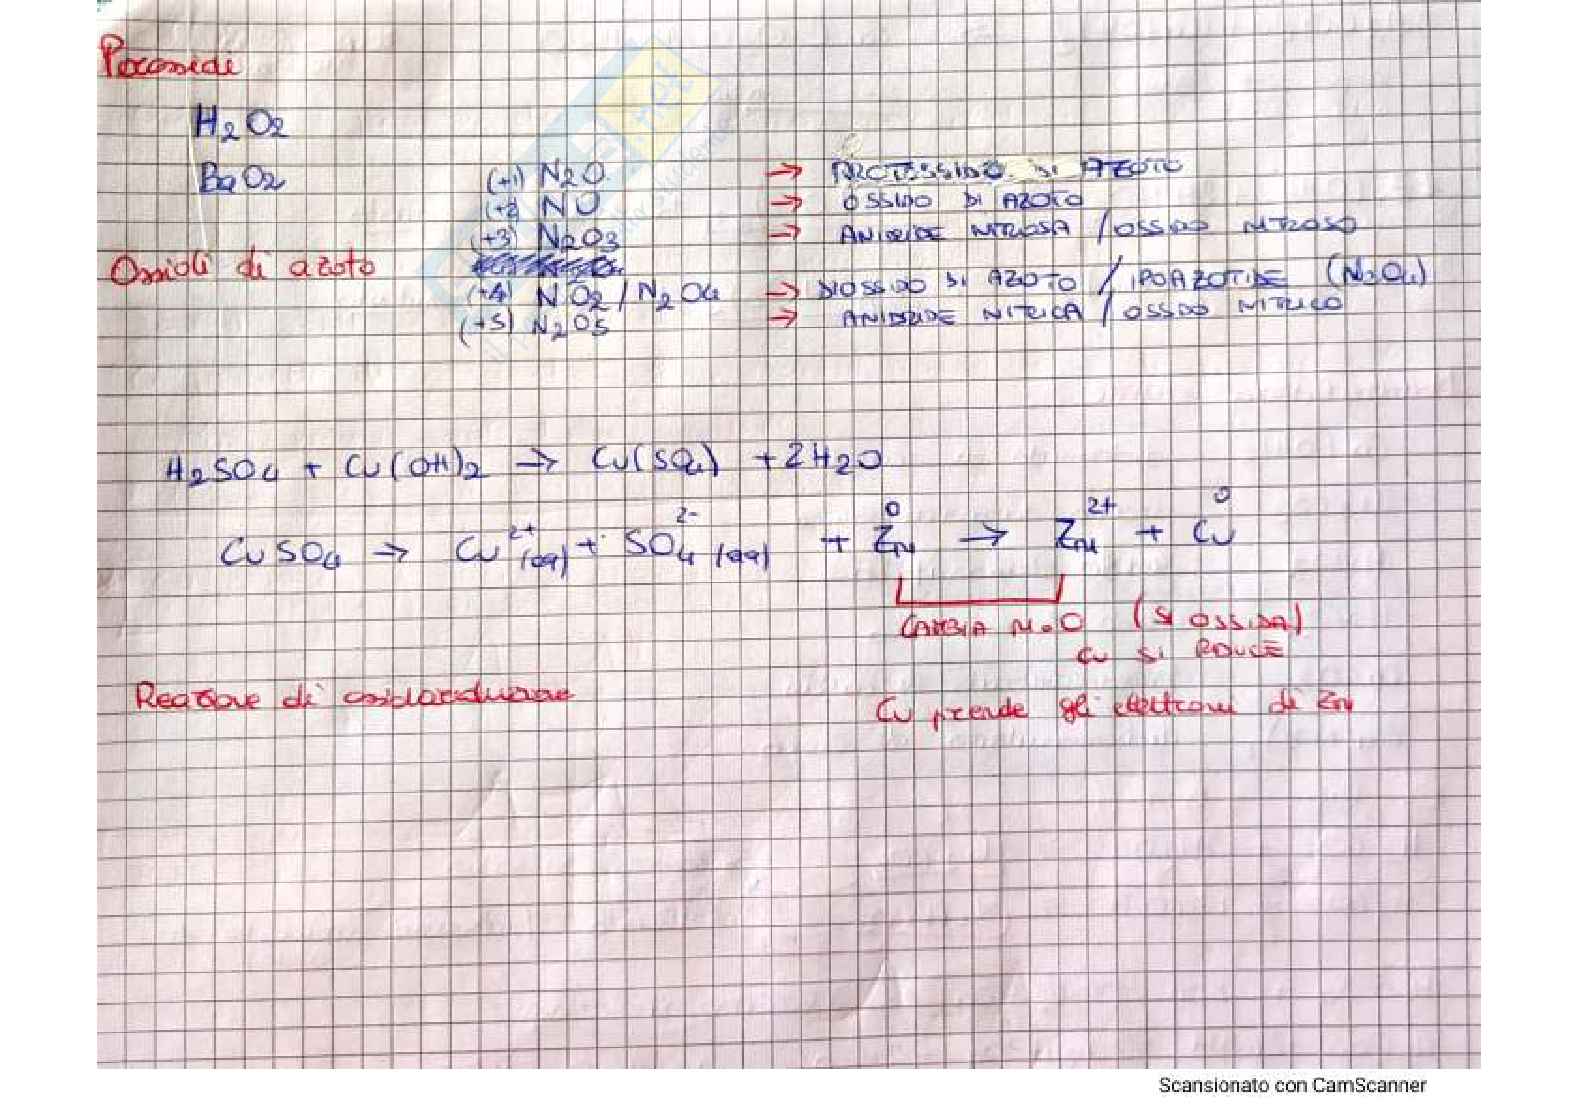 Perossidi
H2O2
BaO2
Ossidi di azoto
(+1) N2O → PROTOSSIDO DI AZOTO
(+2) NO → OSSIDO DI AZOTO
(+3) N2O3 → ANIDRIDE NITROSA / OSSIDO NITROSO
(+4) NO2 / N2O4 → DIOSSIDO DI AZOTO / IPOAZOTIDE (N2O4)
(+5) N2O5 → ANIDRIDE NITRICA / OSSIDO NITRICO
H2SO4 + Cu(OH)2 → Cu(SO4) + 2H2O
CuSO4 → Cu2+(aq) + SO42-(aq) + Zn0 → Zn2+ + Cu0
CAMBIA N.O (SI OSSIDA)
Cu SI RIDUCE
Reazione di ossidoriduzione
Cu prende gli elettroni di Zn
Scansionato con CamScanner